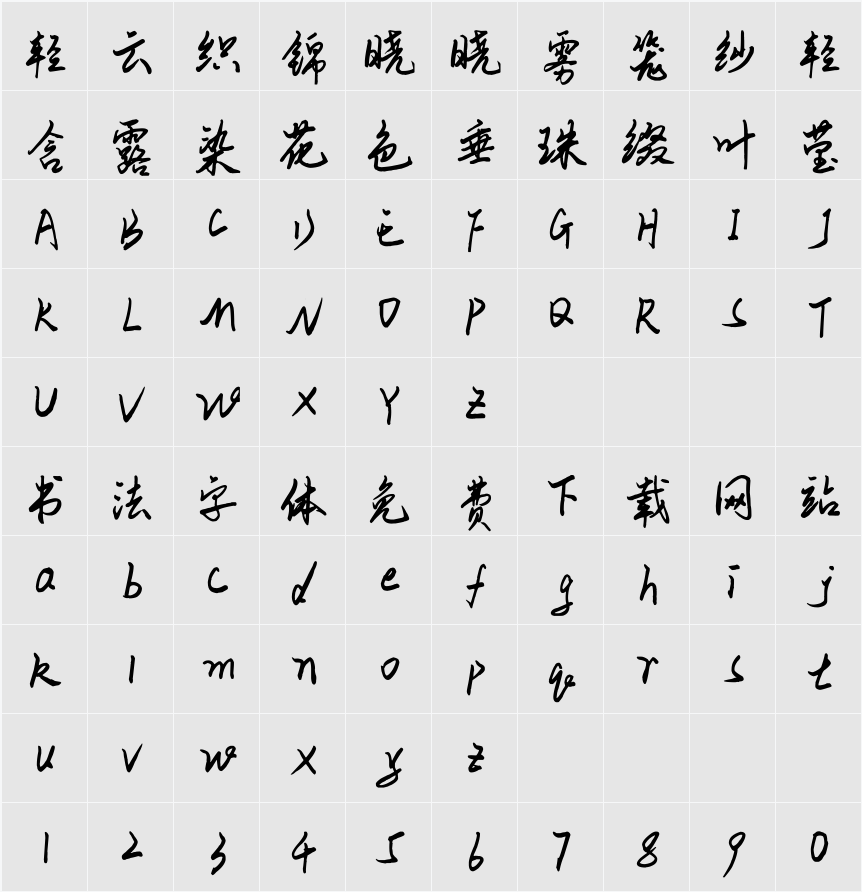 轻 云 织 锦 晓 晓 雾 笼 纱 轻
含 露 染 花 色 垂 珠 缀 叶 莹
A B C D E F G H I J
K L M N O P Q R S T
U V W X Y Z
书 法 字 体 免 费 下 载 网 站
a b c d e f g h i j
k l m n o p q r s t
u v w x y z
1 2 3 4 5 6 7 8 9 0